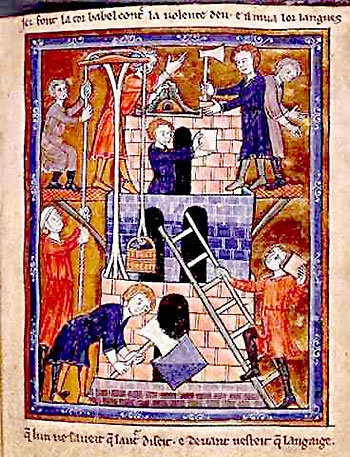 Ici font la tor babel contͤ la volente deu · e il mua lor langues
qͥ lun ne saveit qͤ lautͤ diseit · e devant nesteit qͤ langage.